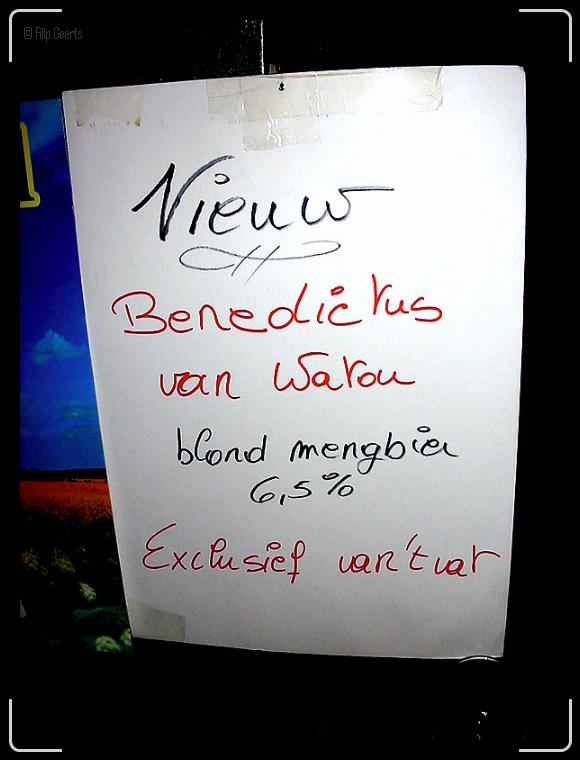 © Filip Geerts
Nieuw
Benedictus
van Watou
blond mengbier
6,5%
Exclusief van 't vat